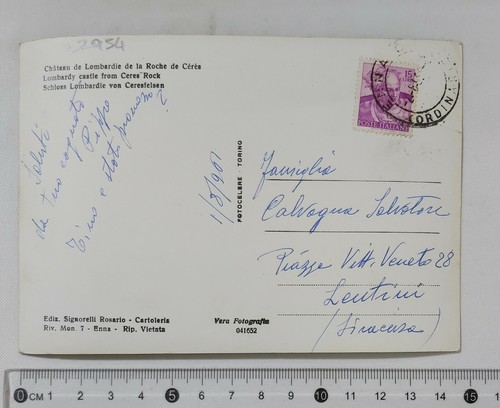 2954
Château de Lombardie de la Roche de Cérès
Lombardy castle from Ceres Rock
Schloss Lombardie von Ceresfelsen
Saluti
da tuo cognato
Pippo
Tino e stato promosso?
1/8/901
FOTOCELERE - TORINO
15
POSTE ITALIANE
ENNA
(ORDINA
Famiglia
Calvagna Salvatore
Piazza Vitt. Veneto 28
Lentini
(Siracusa)
Ediz. Signorelli Rosario - Cartoleria
Riv. Mon. 7 - Enna - Rip. Vietata
Vera Fotografia
041652
0 CM 1 2 3 4 5 6 7 8 9 10 11 12 13 14 15